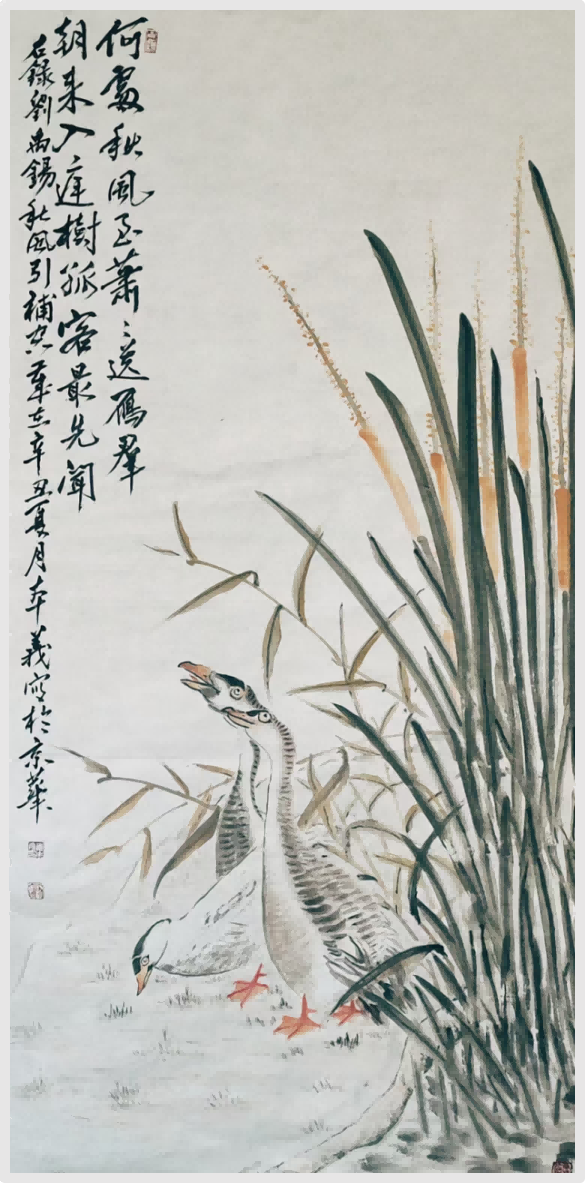 何處秋風至蕭〻送鴈羣
朝来入庭樹孤客最先聞
右錄劉禹錫秋風引補空歲在辛丑夏月本義寫於京華